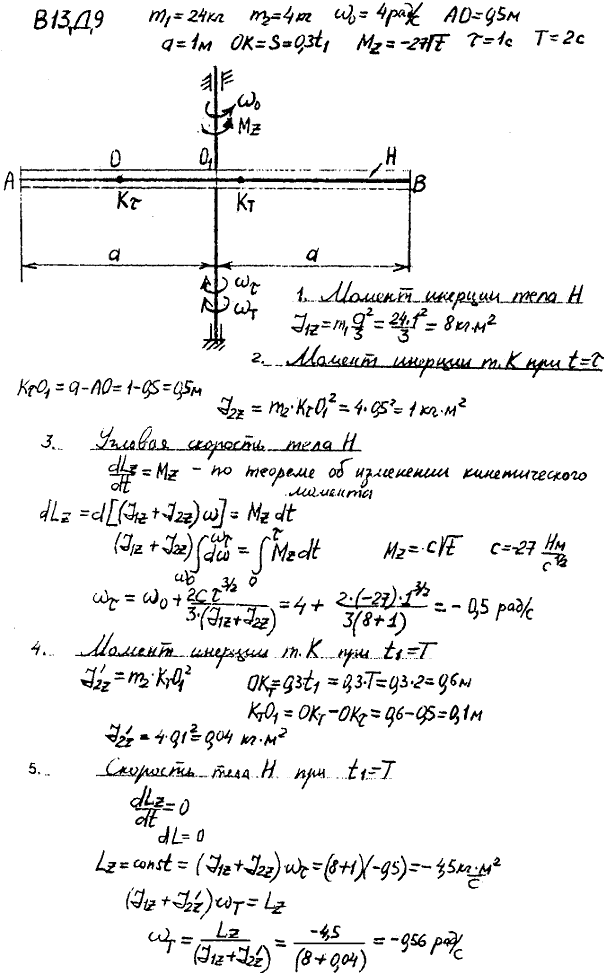 В13,Д9 m₁=24кг m₂=4кг ω₀=4рад/с AO=0,5м
a=1м OK=S=0,3t₁ Mz=-27√t τ=1с T=2с
ω₀
Mz
O O₁ H
A B
Kτ KT
a a
ωτ
ωT
1. Момент инерции тела H
J1z=m₁a²/3=24·1²/3=8кг·м²
2. Момент инерции т.К при t=τ
KτO₁=a-AO=1-0,5=0,5м
J2z=m₂·KτO₁²=4·0,5²=1кг·м²
3. Угловая скорость тела H
dLz/dt=Mz - по теореме об изменении кинетического
момента
dLz=d[(J1z+J2z)ω]=Mzdt
(J1z+J2z)∫ω₀^ωτ dω=∫0^τ Mzdt Mz=c√t c=-27 Нм/с^½
ωτ=ω₀+2cτ^3/2/3·(J1z+J2z)=4+2·(-27)·1^3/2/3(8+1)=-0,5 рад/с
4. Момент инерции т.К при t₁=T
J'2z=m₂·KTO₁² OKT=0,3t₁=0,3·T=0,3·2=0,6м
KTO₁=OKT-OKτ=0,6-0,5=0,1м
J'2z=4·0,1²=0,04 кг·м²
5. Скорость тела H при t₁=T
dLz/dt=0
dL=0
Lz=const=(J1z+J2z)ωτ=(8+1)(-0,5)=-4,5кг·м²/с
(J1z+J'2z)ωT=Lz
ωT=Lz/(J1z+J'2z)=-4,5/(8+0,04)=-0,56 рад/с